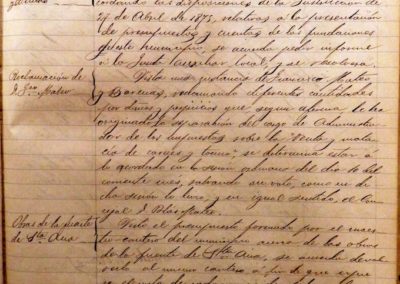 cordando las disposiciones de la Instruccion de
27 de Abril de 1875, relativas á la presentación
de presupuestos y cuentas de las fundaciones
de este municipio, se acuerda pedir informe
á la Junta local, y se
Reclamación de
D. Fco Mateo
Vista una instancia de Francisco Mateo
y reclamando diferentes cantidades
por daños y perjuicios que segun afirma le ha
originado la separación del cargo de Administra-
dor de los impuestos sobre la Venta y matan-
cia de carnes y tocino, se determina estar á
lo acordado en la sesión ordinaria del dia 16 del
corriente mes, salvando su voto, como en di-
cha sesión lo hizo, y en igual sentido, el Con-
cejal D. Blas Mateo.
Obras de la fuente
de Sta Ana
Visto el presupuesto formado por el maes-
tro cantero del municipio acerca de las obras
de la fuente de Sta Ana, se acuerda devol-
verlo al mismo cantero á fin de que espe-